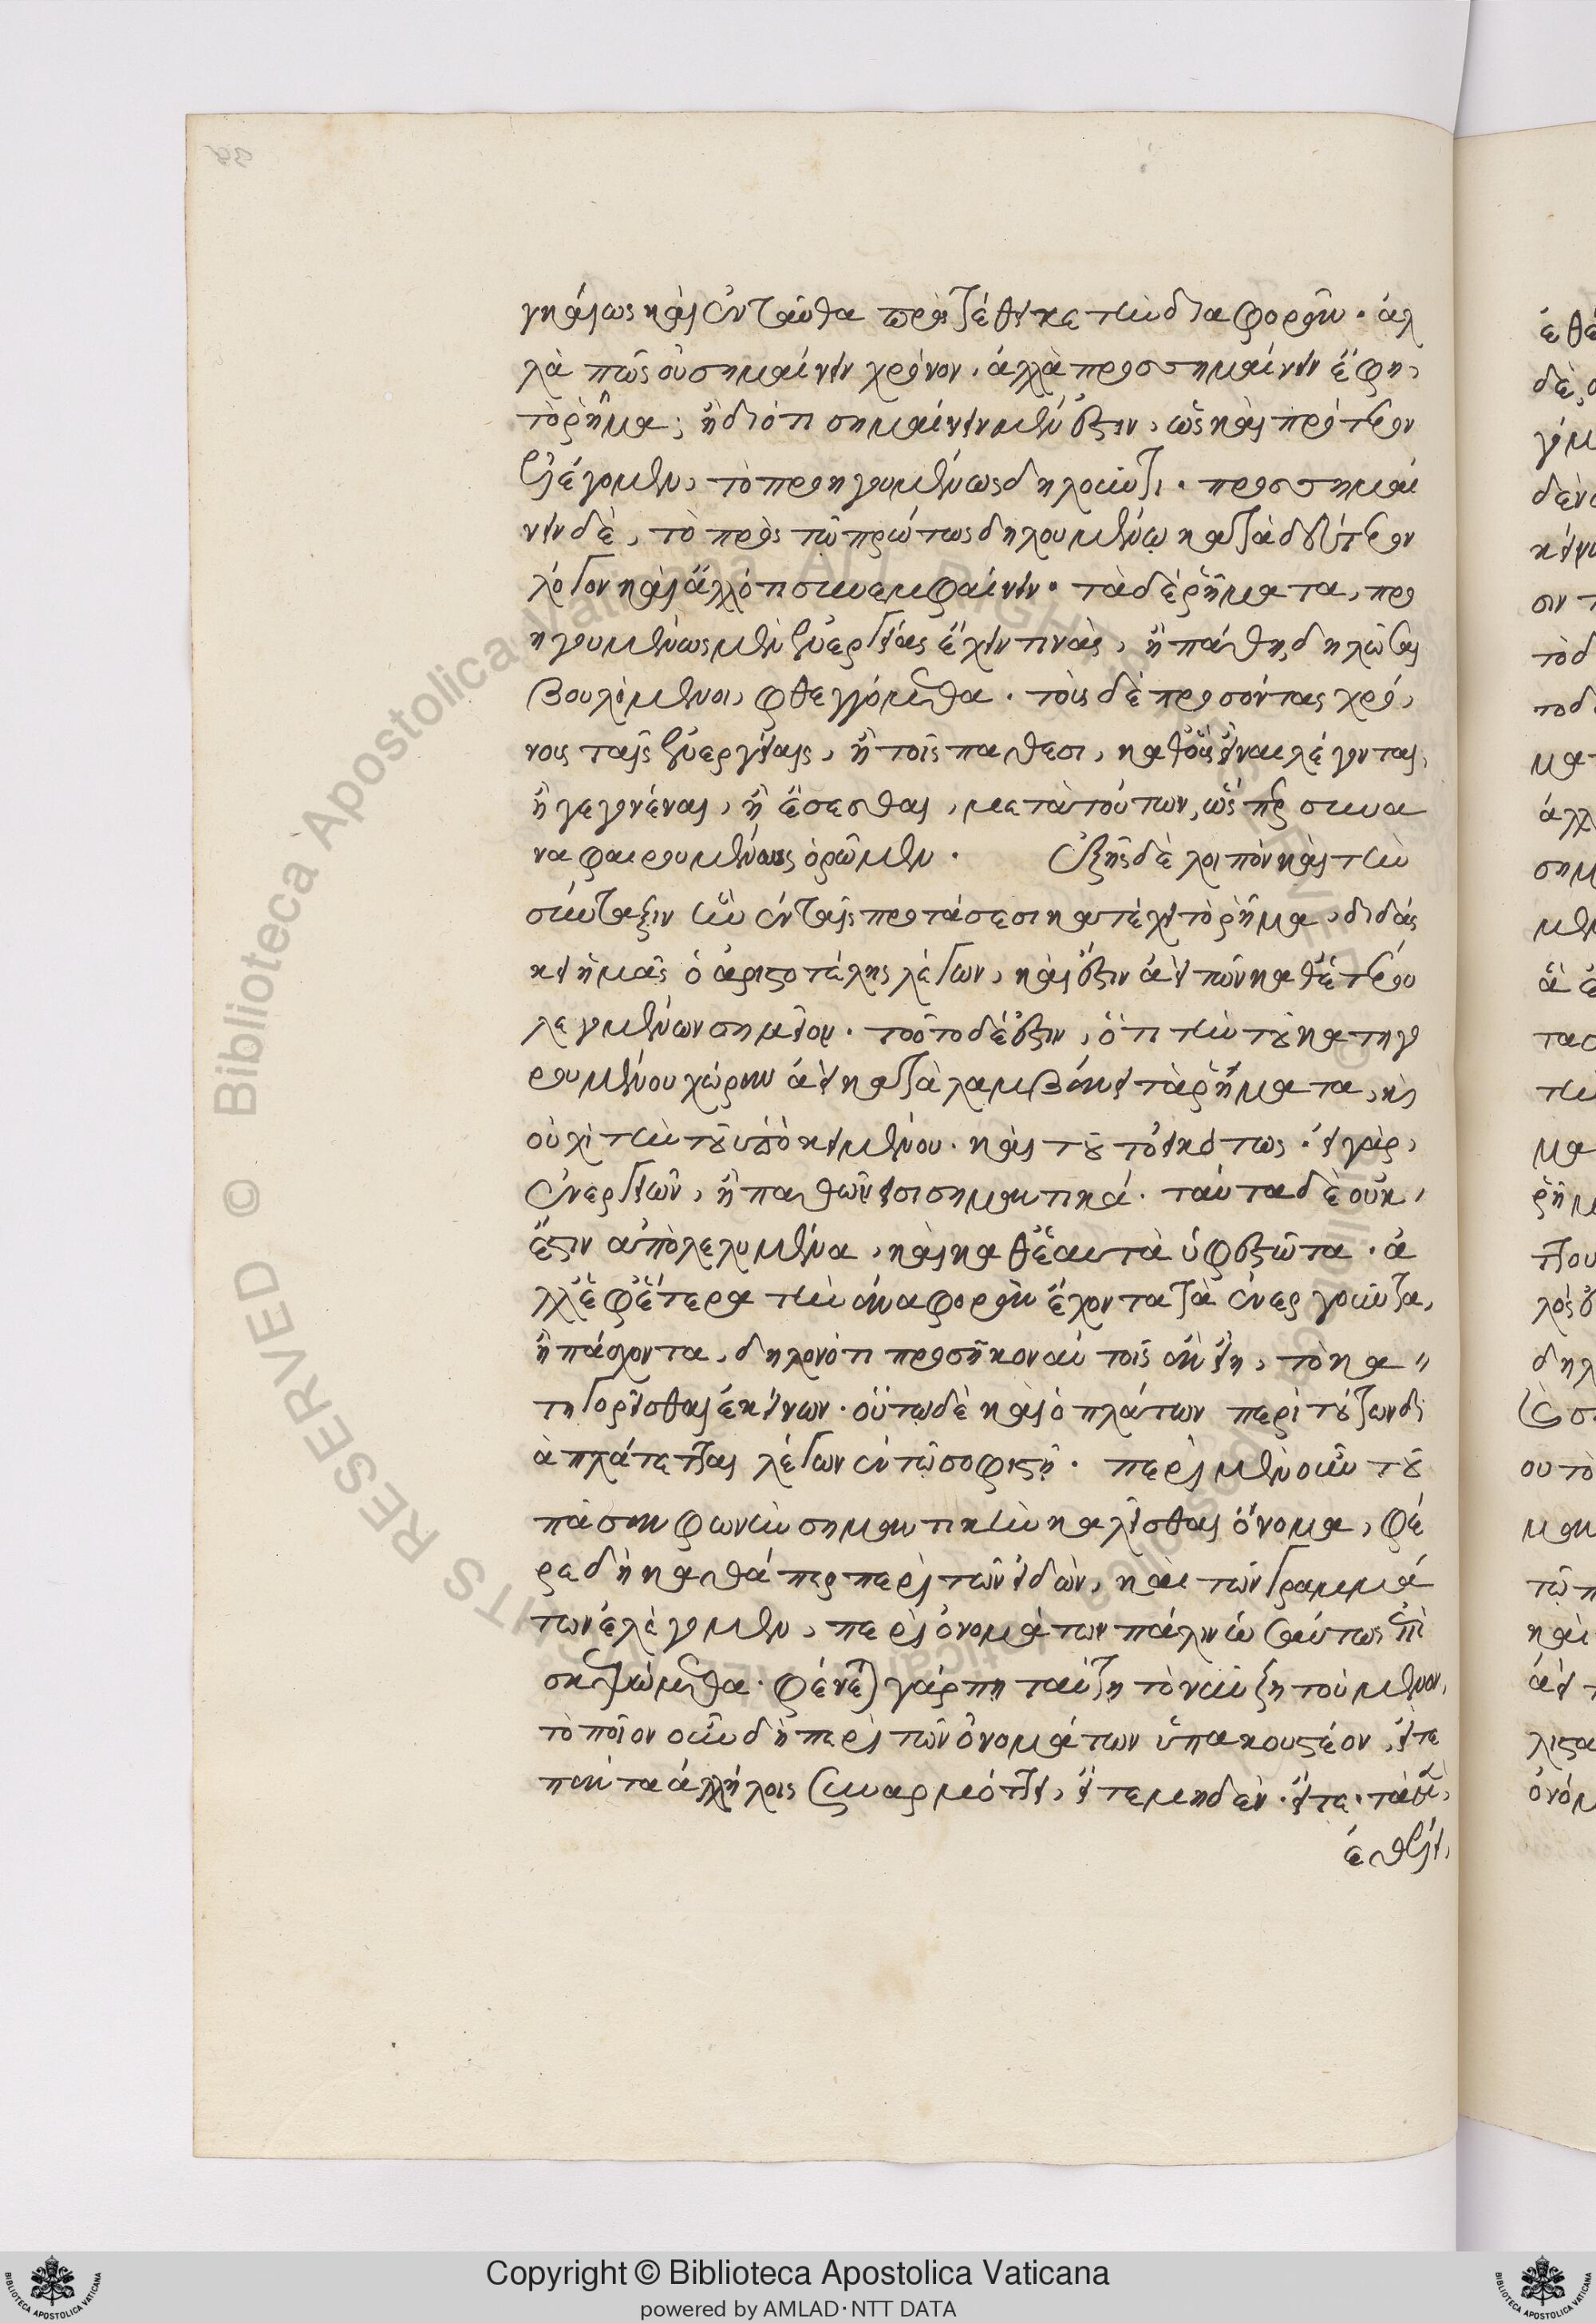 γκαίως καὶ ἐνταῦθα προστέθεικε τὴν διαφορὰν. ἀλ
λὰ πῶς οὐ σημαίνειν χρόνον, ἀλλὰ προσσημαίνειν ἔφη,
τὸ ῥῆμα, ἢ διότι σημαίνειν μέν ἐστιν, ὡς καὶ πρότερον
ἐλέγομεν, τὸ προηγουμένως δηλοῦν τι. προσσημαί
νειν δὲ, τὸ πρὸς τῷ πρώτως δηλουμένῳ κατὰ δεύτερον
λόγον καὶ ἄλλό τι συνεμφαίνειν. τὰ δὲ ῥήματα, προ
ηγουμένως μὲν ἐνεργείας ἔχειν τινὰς, ἢ πάθη δηλῶσαι
βουλόμενοι, φθεγγόμεθα. τοὺς δὲ προσόντας χρό,
νους ταῖς ἐνεργείαις, ἢ τοῖς παθεσι, καθ' οὓς εἶναι λέγονται,
ἢ γεγονέναι, ἢ ἔσεσθαι, μετὰ τούτων, ὥσπερ συνα
ναφαιρουμένους ὁρῶμεν. ἑξῆς δὲ λοιπὸν καὶ τὴν
σύνταξιν ἣν ἐν ταῖς προτάσεσι κατέχει τὸ ῥῆμα, διδάσ
κει ἡμᾶς ὁ ἀριστοτέλης λέγων, καὶ ἔστιν ἀεὶ τῶν καθ' ἑτέρου
λεγομένων σημεῖον. τοῦτο δέ ἐστιν, ὅτι τὴν τοῦ κατηγο
ρουμένου χώραν ἀεὶ καταλαμβάνει τὰ ῥήματα, καὶ
οὐχὶ τὴν τοῦ ὑποκειμένου. καὶ τοῦτο εἰκότως. εἰ γὰρ,
ἐνεργειῶν, ἢ παθῶν εἰσι σημαντικά. ταῦτα δὲ οὐκ,
ἔστιν ἀπολελυμένα, καὶ καθ' ἑαυτὰ ὑφεστῶτα. ἀ
λλ' ἐφ' ἕτερα τὴν ἀναφορὰν ἔχοντα τὰ ἐνεργοῦντα,
ἢ πάσχοντα, δηλονότι προσῆκον αὐτοῖς ἂν εἴη, τὸ κα
τηγορεῖσθαι ἐκείνων. οὕτω δὲ καὶ ὁ πλάτων περὶ τούτων δι
α πλάτεται λέγων ἐν τῷ σοφιστῇ. περὶ μὲν οὖν τοῦ
πᾶσαν φωνὴν σημαντικὴν καλεῖσθαι ὄνομα, φέ
ρε δὴ καθάπερ περὶ τῶν εἰδῶν, καὶ τῶν γραμμά
των ἐλέγομεν, περὶ ὀνομάτων πάλιν ὡσαύτως ἐπι
σκεψώμεθα. φαίνεται γάρ πῃ ταύτῃ τὸ νῦν ζητούμενον,
τὸ ποῖον οὖν δὴ περὶ τῶν ὀνομάτων ὑπακουστέον, εἴτε
πάντα ἀλλήλοις ξυναρμόττει, εἴτε μηδὲν. εἴτε. τὰ μὲν,
ἐθέλει,